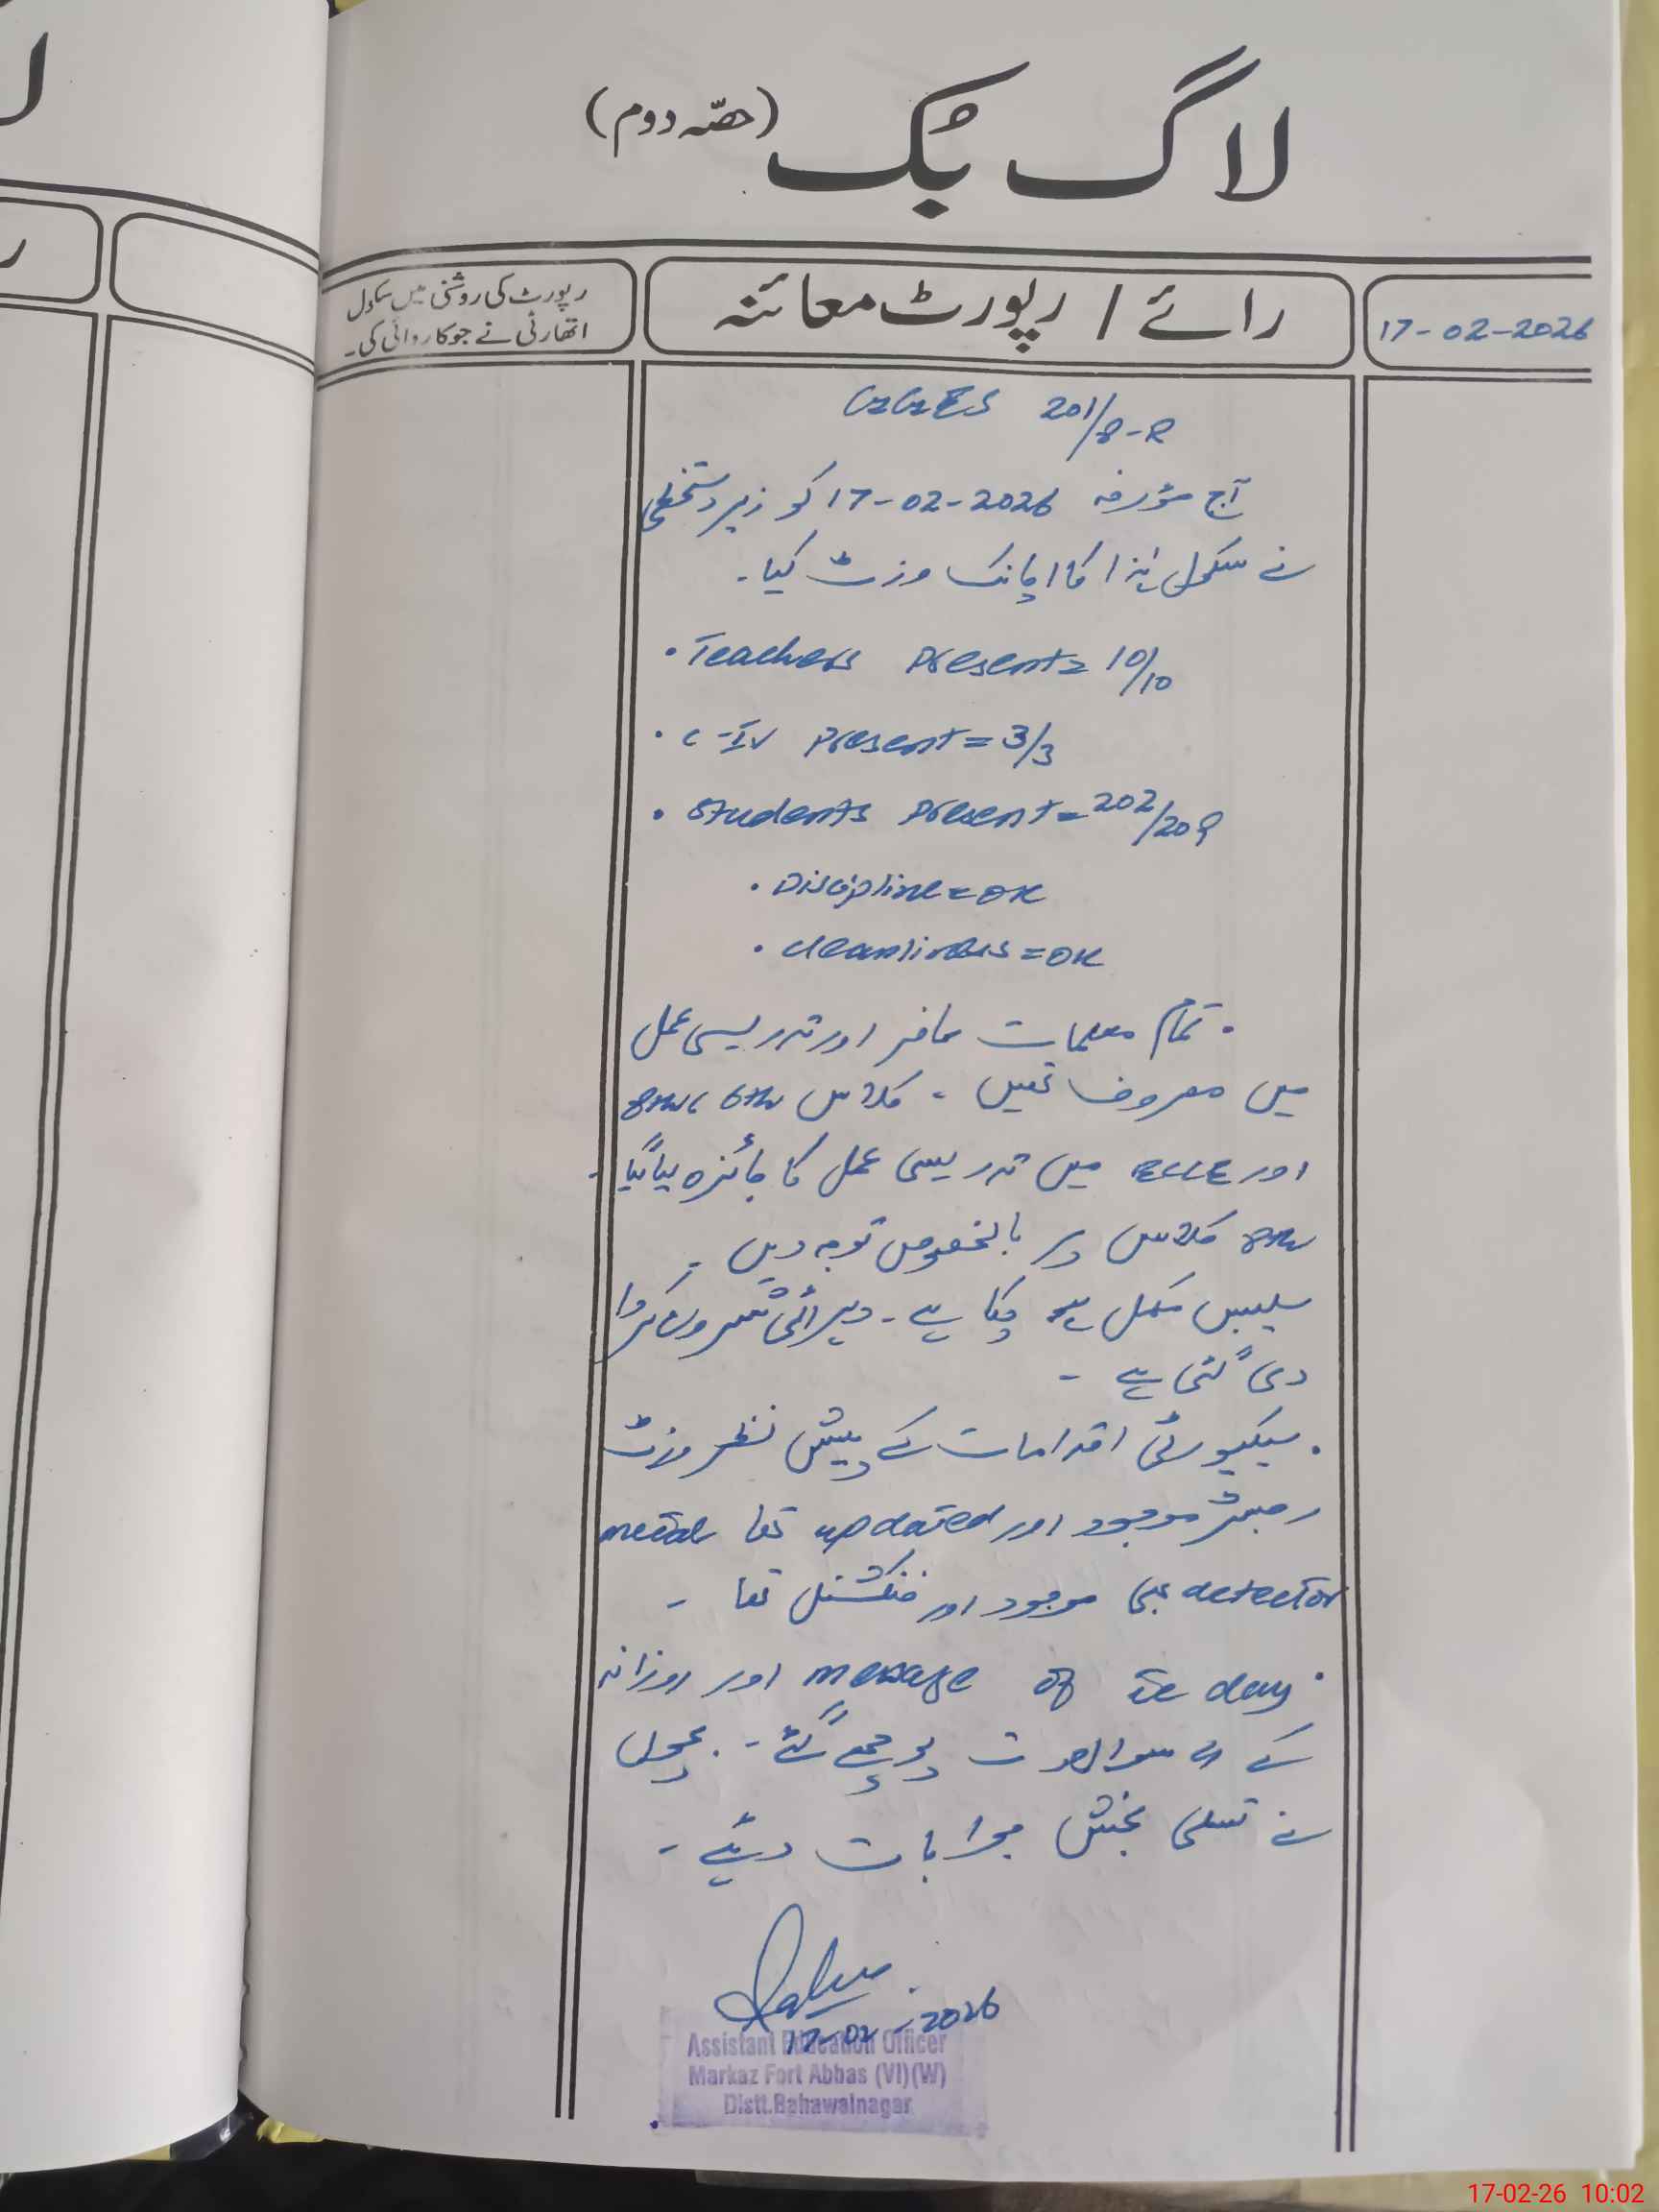 لاگ بُک (حصّہ دوم)
17-02-2026
رائے / رپورٹ معائنہ
رپورٹ کی روشنی میں سکول
اتھارٹی نے جو کاروائی کی۔
GGES 201/8-R
آج مؤرخہ 17-02-2026 کو زیر دستخطی
نے سکول ہٰذا کا اچانک وزٹ کیا۔
• Teachers Present = 10/10
• C-IV Present = 3/3
• Students Present = 202/209
• Discipline = OK
• cleanliness = OK
• تمام معلمات حاضر اور تدریسی عمل
میں مصروف تھیں۔ کلاس 6th، 8th
اور ECCE میں تدریسی عمل کا جائزہ لیا گیا۔
8th کلاس پر بالخصوص توجہ دیں۔
سلیبس مکمل ہو چکا ہے۔ دہرائی شروع کروا
دی گئی ہے۔
• سیکیورٹی اقدامات کے پیش نظر وزٹ
رجسٹر موجود اور updated تھا metal
detector بھی موجود اور فنکشنل تھا۔
• message of the day اور روزانہ
کے سوالات پوچھے گئے۔ بچوں
نے تسلی بخش جوابات دیئے۔
17-02-2026
Assistant Education Officer
Markaz Fort Abbas (VI)(W)
Distt.Bahawalnagar
17-02-26 10:02